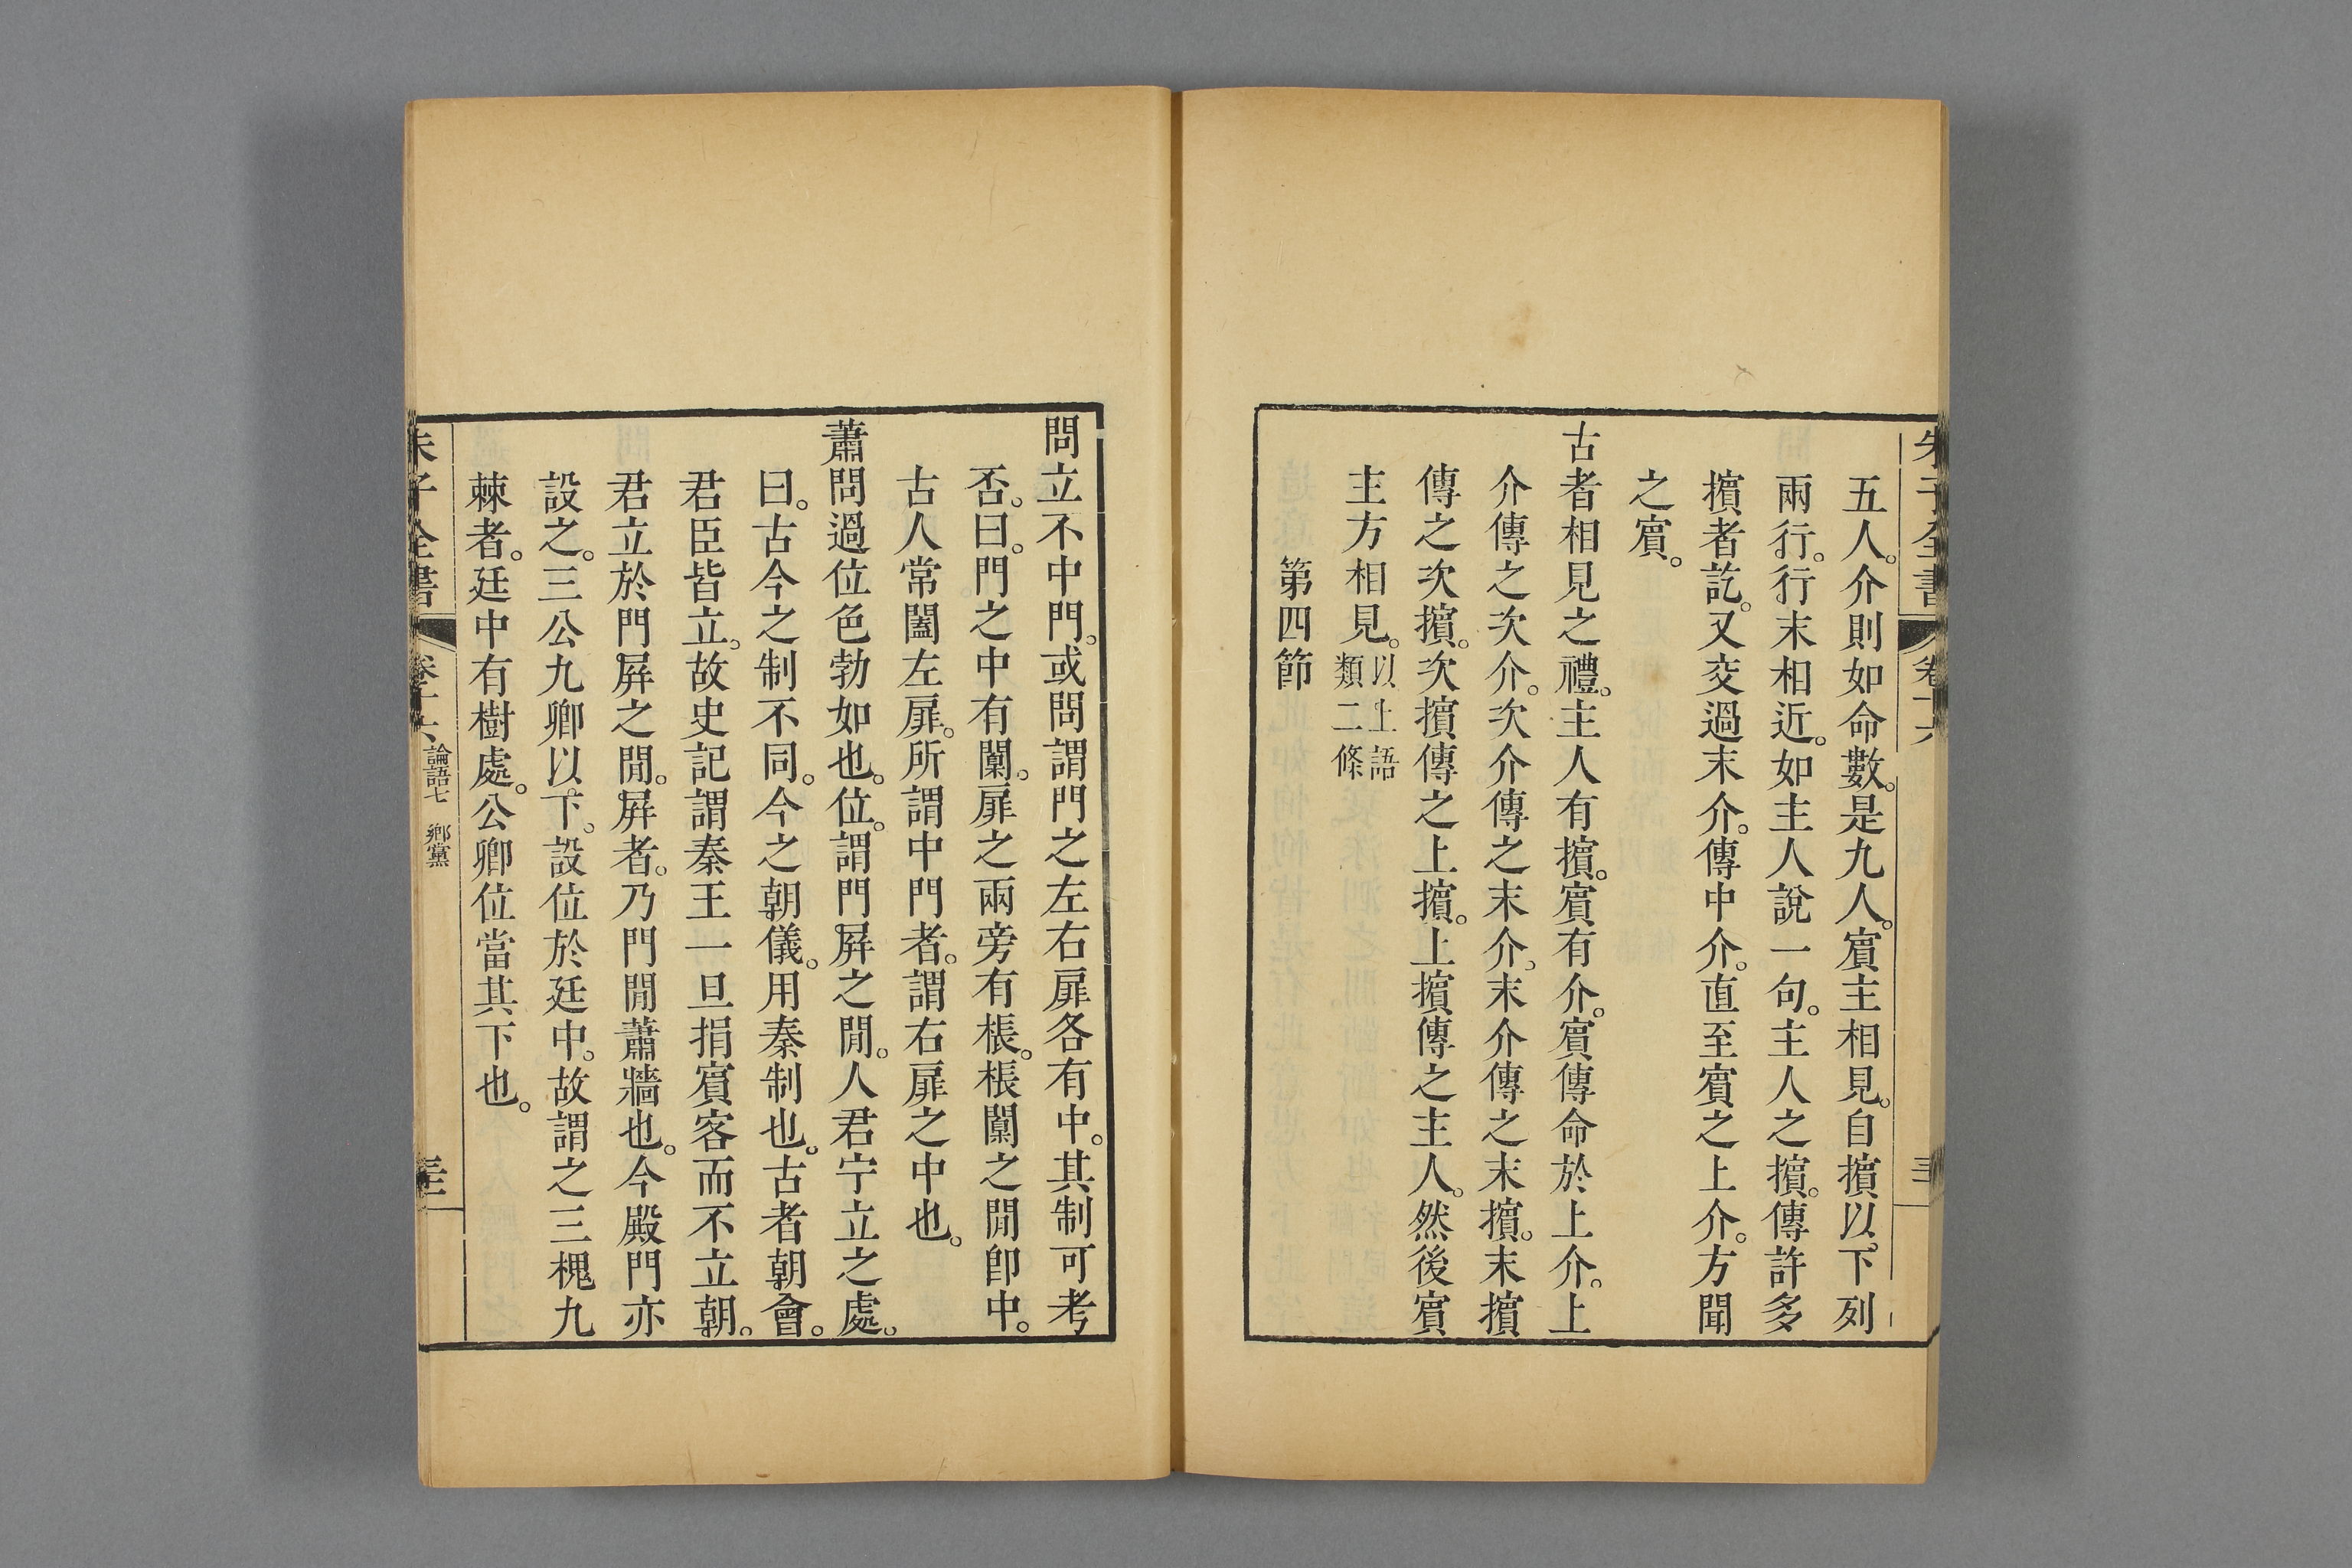 朱子全書 卷十六
五人。介則如命數。是九人。賓主相見。自擯以下列
兩行。行末相近。如主人說一句。主人之擯。傳許多
擯者訖。又交過末介。傳中介。直至賓之上介。方聞
之賓。
古者相見之禮。主人有擯。賓有介。賓傳命於上介。上
介傳之次介。次介傳之末介。末介傳之末擯。末擯
傳之次擯。次擯傳之上擯。上擯傳之主人。然後賓
主方相見。以上語類二條
第四節
問立不中門。或問謂門之左右扉各有中。其制可考
否。曰。門之中有闑。扉之兩旁有棖。棖闑之閒卽中。
古人常闔左扉。所謂中門者。謂右扉之中也。
蕭問過位色勃如也。位。謂門屛之閒。人君宁立之處。
曰。古今之制不同。今之朝儀。用秦制也。古者朝會。
君臣皆立。故史記謂秦王一旦捐賓客而不立朝。
君立於門屛之閒。屛者。乃門閒蕭牆也。今殿門亦
設之。三公九卿以下。設位於廷中。故謂之三槐九
棘者。廷中有樹處。公卿位當其下也。
朱子全書 卷十六 論語七 鄉黨